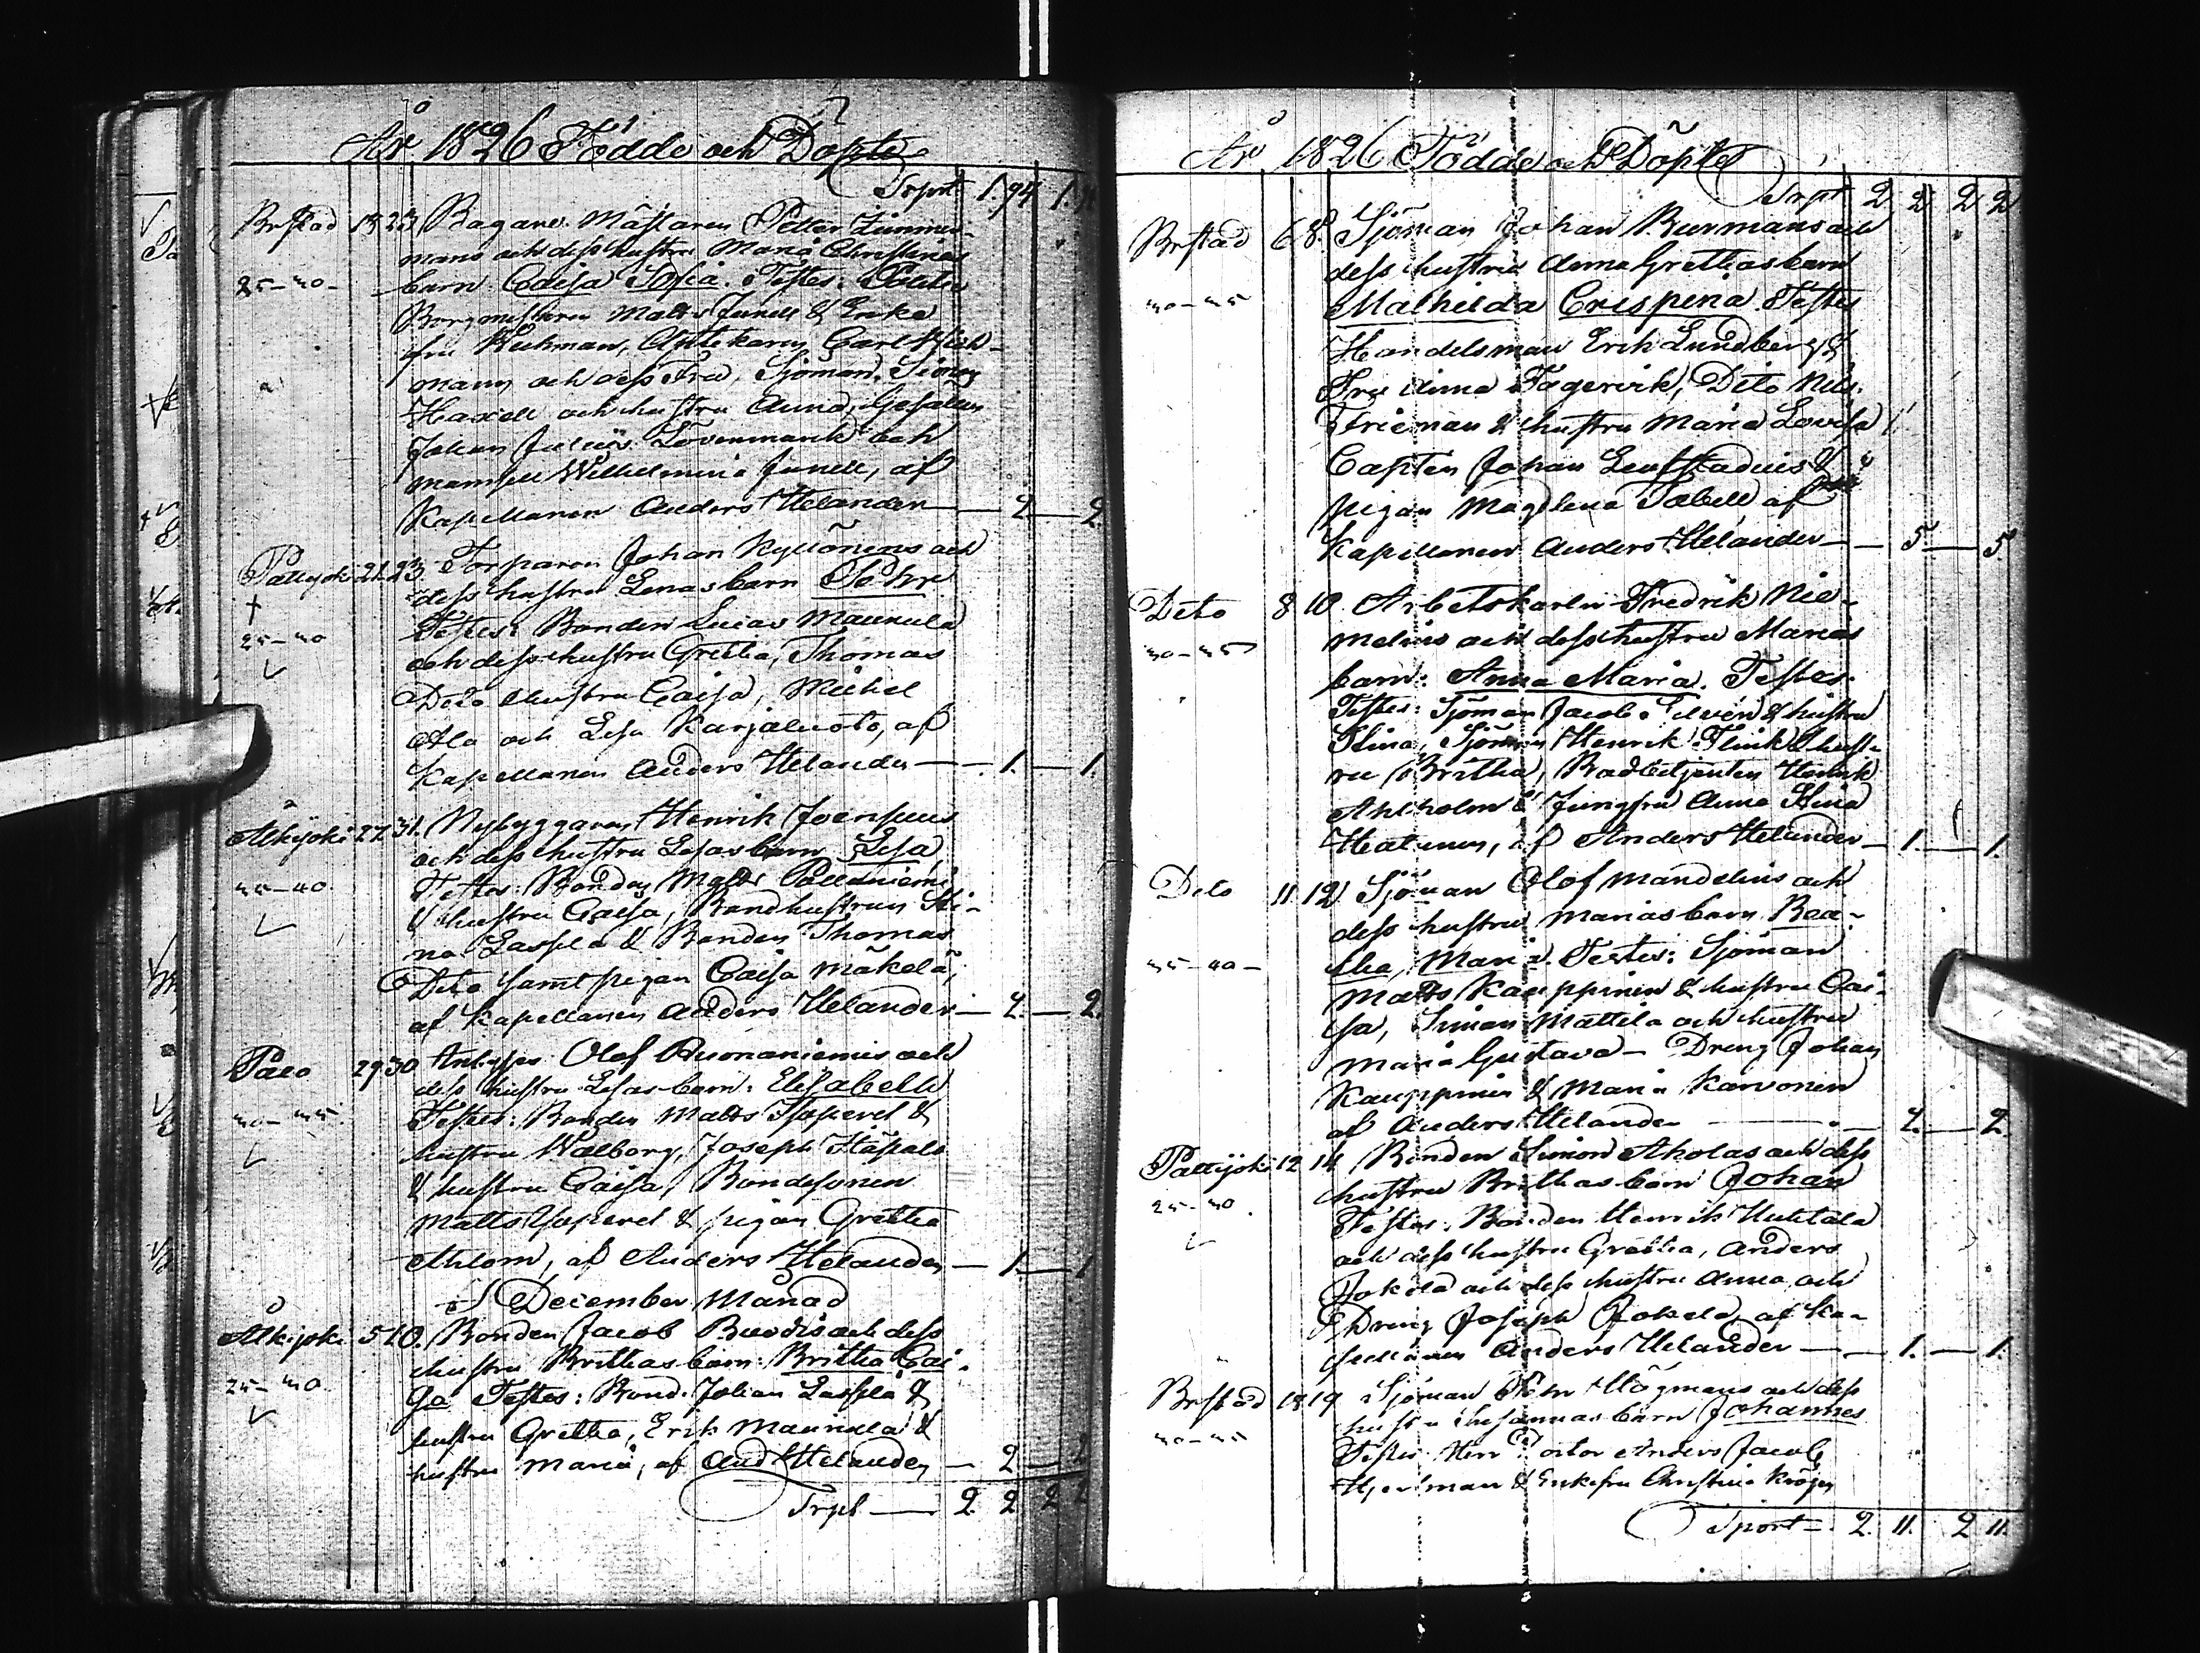 År 1826 Födde och Döpte
Trsport 1. 94 1.
Brstad 18 23 Bagare Mästaren Petter Zimmer-
mans och dess hustru Maria Christinas
25-30- barn Edessa Sofia. Testes:
Borgmestaren Matts Junell & Enke
fru Riekman, Apthekaren Carl Riek-
mann och dess Fru, Sjöman Simon
Haxell och hustru Anna, Gesällen
Johan Julius Lövenmark och
mamsell Wilhelmina Junell, af
Kapellanen Anders Helander — 2 — 2
Pattijoki 21. 23. Torparen Johan Kyllönens och
dess hustru Lenas barn Pehr
25-30 Testes: Bonden Lucas Maunula
och dess hustru Gretha, Thomas
Dito hustru Caisa, Michel
Ala och Lisa Karjaluoto, af
Kapellanen Anders Helander — 1. — 1.
Alkijoki 27 31. Nybyggaren Henrik Joensuus
och dess hustru Lisas barn Lisa
35-40 Testes: Bonden Matts Palloniemi
& hustru Caisa, Bondhustrun Sti-
na Lassila & Bonden Thomas
Dito samt pigan Caisa Mäkelä,
af Kapellanen Anders Helander — 2. — 2.
Palo 29 30 Olof Ruonaniemis och
dess hustru Lisas barn: Elisabeth
30-35. Testes: Bonden Matts &
hustru Walborg, Joseph
& hustru Caisa, Bondesonen
Matts & pigan Gretha
Ahlom, af Anders Helander — 1. — 1
I December Månad
Alkijoki 5 10. Bonden Jacob och dess
hustru Brithas barn: Britha Cai-
25-30. sa Testes: Bond. Johan Lassila &
hustru Gretha, Erik Maunula &
hustru Maria, af And Helander — 2 — 2
Trspt — 2. 2 2 2
År 1826 Födde och Döpte
Trspt 2 2 2 2
Brstad 6 8. Sjöman Johan Burmans och
dess hustru Anna Grethas barn
30-35 Mathilda Crispina Testes
Handelsman Erik Lundberg &
Fru Anna Fagervik, Dito Nils
Frieman & hustru Maria Lovisa
Capten Johan Leufstadius &
pigan Magdlena Tabell af
Kapellanen Anders Helander — 5 — 5.
Dito 8 10 Arbetskarlen Fredrik Nie-
melins och dess hustru Marias
30-35 barn: Anna Maria. Testes.
Testes: Sjöman Jacob & hustru
Stina, Sjöman Henrik Flink & hust-
ru Britha, Henrik
Ahlholm & Jungfru Anna Stina
af Anders Helander — 1. — 1.
Dito 11. 12 Sjöman Olof Mandelins och
dess hustru Marias barn Bea-
35-40- tha, Maria. Testes: Sjöman
Matts Kauppinen & hustru Cai-
sa, Simon Mattila och hustru
Maria Gustava - Dreng Johan
Kauppinen & Maria Karvonen
af Anders Helander — 2. — 2.
Pattijoki 12 14 Bonden Simon Aholas och dess
hustru Brithas barn Johan
25-30. Testes: Bonden Henrik Huhtala
och dess hustru Gretha, Anders
Jokela och dess hustru Anna och
Dreng Joseph Jokela, af Ka-
pellanen Anders Helander — 1. — 1.
Brstad 18 19 Sjöman Pehr Högmans och dess
hustru Susannas barn Johannes
30-35 Testes: Herr Anders Jacob
Hjelman & Enkefru Christina Kröger
Tsport — 2. 11. 2 11.